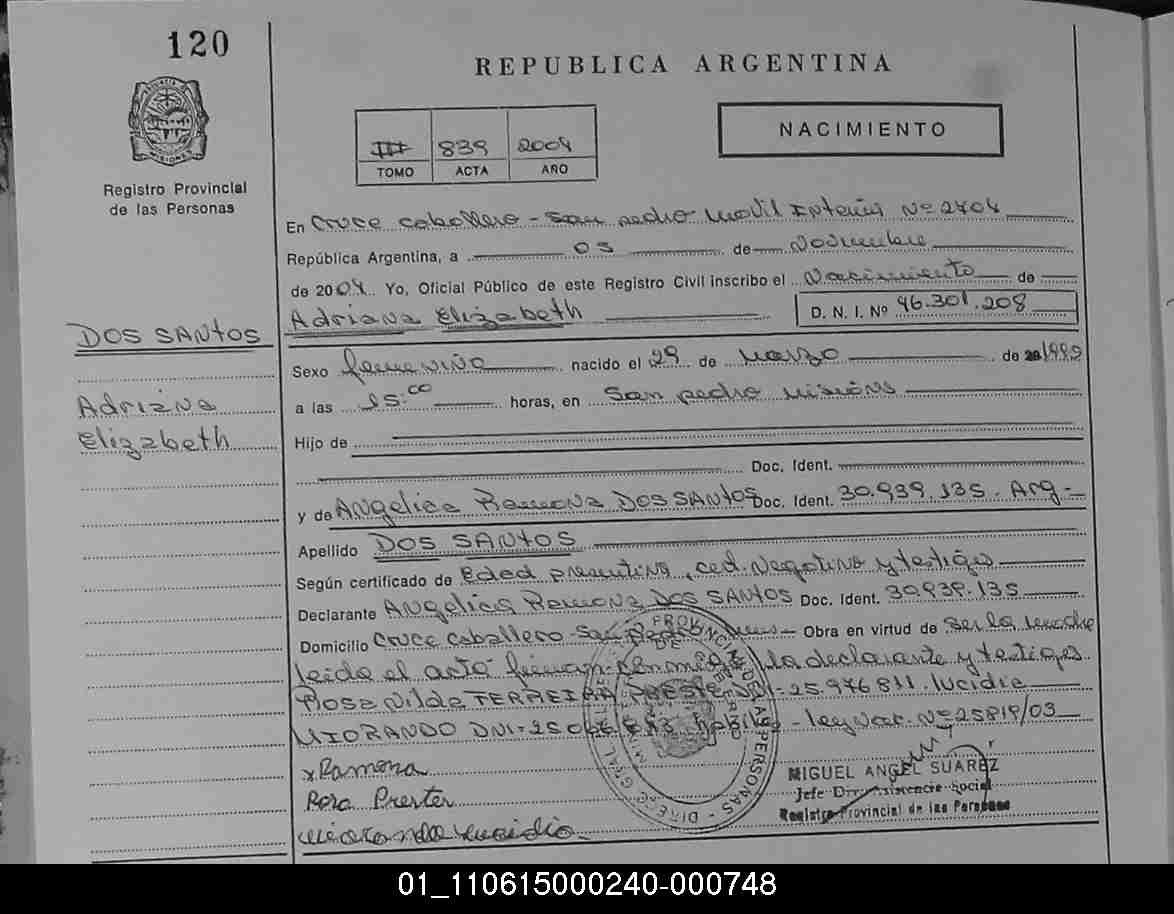 120
REPUBLICA ARGENTINA
PROVINCIA DE
MISIONES
Registro Provincial
de las Personas
III 839 2004
TOMO ACTA AÑO
NACIMIENTO
En Cruce caballero - San pedro Movil Nº 2404
República Argentina, a 05 de Noviembre
de 2004. Yo, Oficial Público de este Registro Civil inscribo el Nacimiento de
Adriana Elizabeth D. N. I. Nº 46.301.208
DOS SANTOS
Adriana
Elizabeth
Sexo femenino nacido el 29 de marzo de 1999
a las 15:00 horas, en San pedro Misiones
Hijo de
Doc. Ident.
y de Angelica Ramona DOS SANTOS Doc. Ident. 30.939.135. Arg.-
Apellido DOS SANTOS
Según certificado de Edad presuntiva, ced. Negativa y testigos
Declarante Angelica Ramona DOS SANTOS Doc. Ident. 30.939.135
Domicilio Cruce caballero - San Pedro Obra en virtud de ser la madre
leida el acta firman conmigo la declarante y testigos
Rosa Nilda FERREIRA DNI-25.976811. lucidia
DNI-250 - ley Nac. Nº 25819/03
x Ramona
Rosa Prester
MIGUEL ANGEL SUAREZ
Jefe Dir. Asistencia Social
Registro Provincial de las Personas
01_110615000240-000748